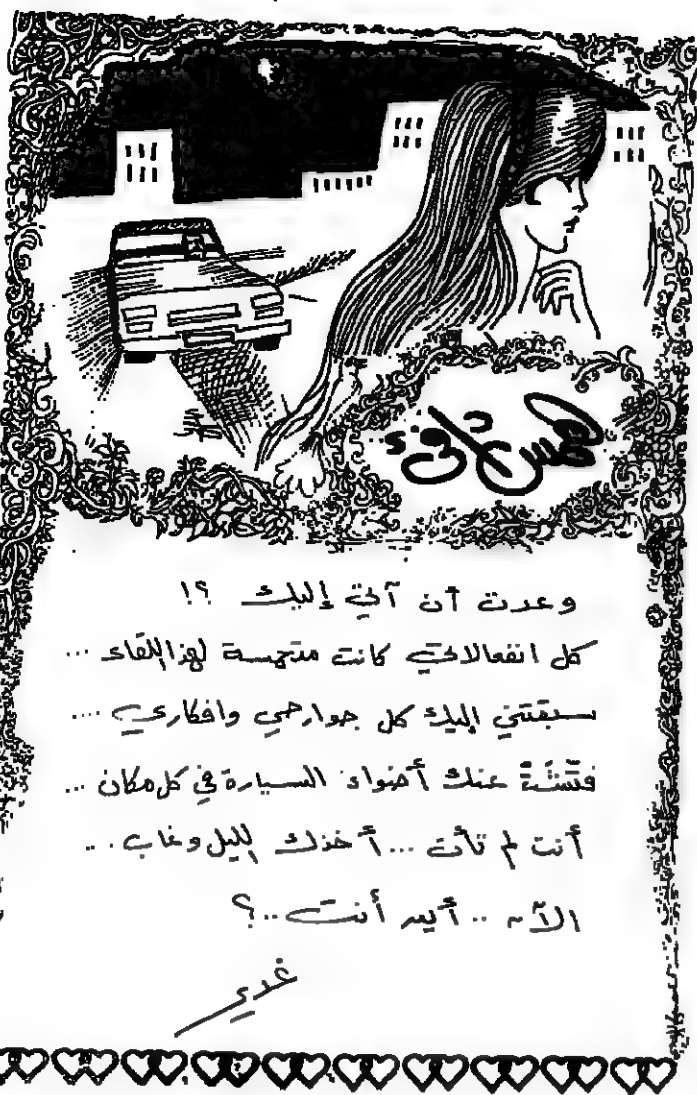 همس دافئ
وعدت أن آتي إليك ؟!
كل انفعالاتي كانت متحمسة لهذا اللقاء ...
سبقتني إليك كل جوارحي وافكاري ....
فتّشتْ عنك أضواء السيارة في كل مكان ...
أنت لم تأت ... أخذك الليل وغاب ...
الآن .. أين أنت ..؟